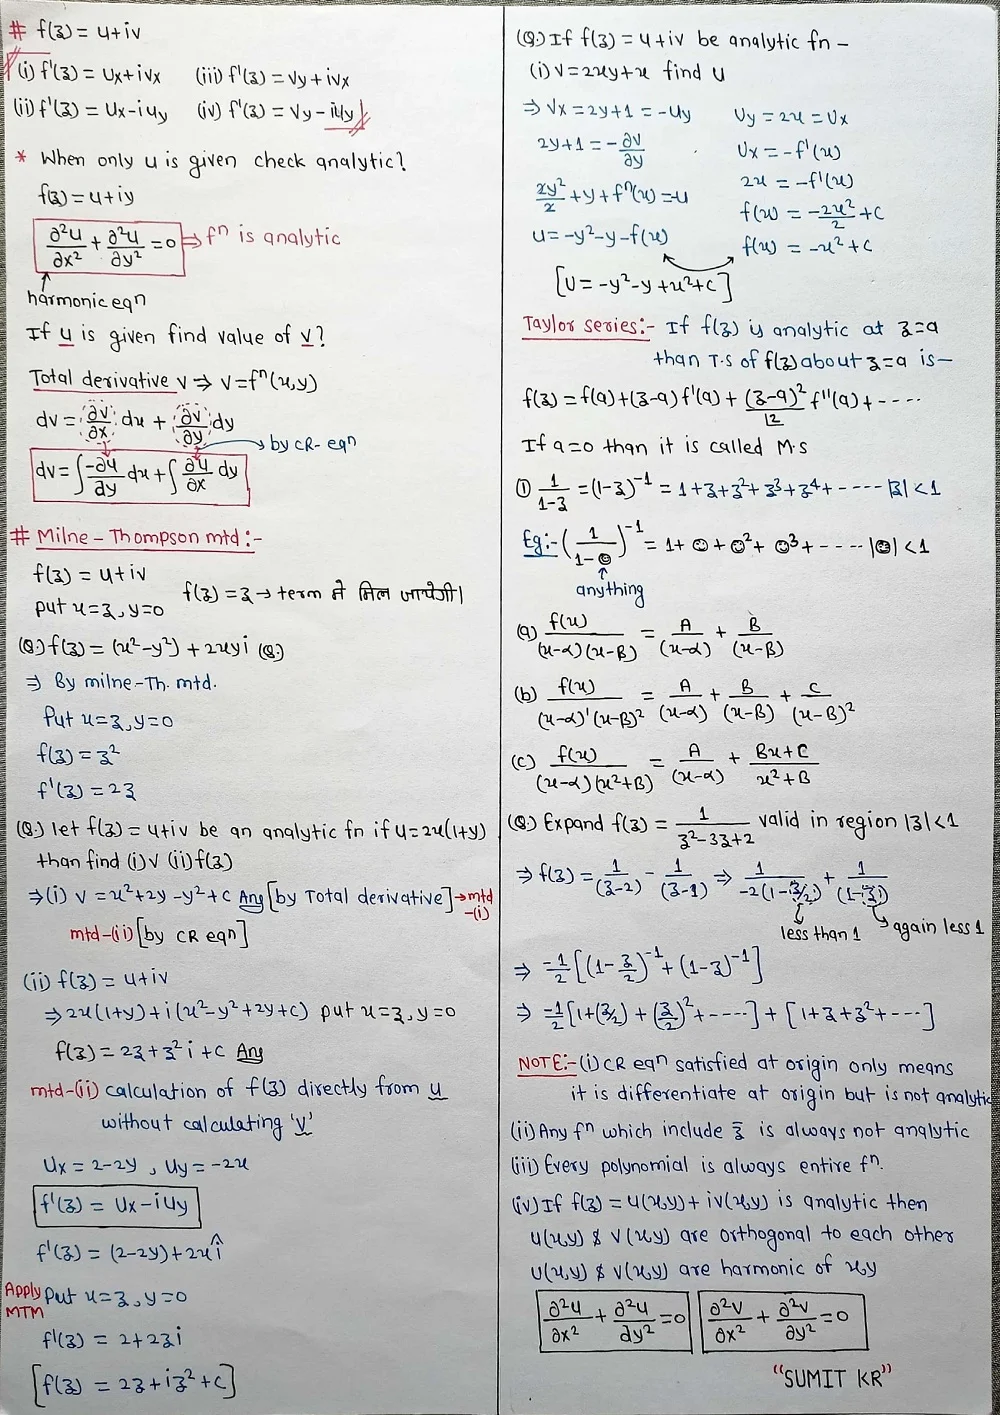 # f(z) = u+iv
(i) f'(z) = Ux+iVx (iii) f'(z) = Vy+iVx
(ii) f'(z) = Ux-iUy (iv) f'(z) = Vy-iUy
* When only u is given check analytic?
f(z) = u+iy
∂²u/∂x² + ∂²u/∂y² = 0 ⇒ fⁿ is analytic
harmonic eqn
If u is given find value of v?
Total derivative v ⇒ v=fⁿ(x,y)
dv = ∂v/∂x dx + ∂v/∂y dy
by CR- eqn
dv = ∫ -∂u/∂y dx + ∫ ∂u/∂x dy
# Milne - Thompson mtd :-
f(z) = u+iv
put x=z, y=0
f(z) = z → term में मिल जायेगी।
(Q:) f(z) = (x²-y²) + 2xyi (Q:)
⇒ By milne-Th. mtd.
Put x=z, y=0
f(z) = z²
f'(z) = 2z
(Q:) let f(z) = u+iv be an analytic fn if u=2x(1+y)
than find (i) v (ii) f(z)
⇒ (i) v = x²+2y-y²+c Ans [by Total derivative] → mtd -(i)
mtd-(ii) [by CR eqn]
(ii) f(z) = u+iv
⇒ 2x(1+y) + i(x²-y²+2y+c) put x=z, y=0
f(z) = 2z+z²i+c Ans
mtd-(ii) calculation of f(z) directly from u
without calculating 'v'
Ux = 2-2y , Uy = -2x
f'(z) = Ux-iUy
f'(z) = (2-2y)+2xî
Apply MTM Put x=z, y=0
f'(z) = 2+2zi
[f(z) = 2z+iz²+c]
(Q:) If f(z) = u+iv be analytic fn -
(i) v=2xy+x find u
⇒ Vx = 2y+1 = -Uy Vy = 2x = Ux
2y+1 = -∂v/∂y Ux = -f'(x)
2x = -f'(x)
2y²/2 +y+fⁿ(x) = -u
f(x) = -2x²/2 +c
u = -y²-y-f(x)
f(x) = -x²+c
[U = -y²-y+x²+c]
Taylor series:- If f(z) is analytic at z=a
than T.S of f(z) about z=a is-
f(z) = f(a)+(z-a) f'(a) + (z-a)²/|2 f''(a)+----
If a=0 than it is called M.S
① 1/1-z = (1-z)⁻¹ = 1+z+z²+z³+z⁴+----- |z|<1
Eg:- (1/1-☺)⁻¹ = 1+☺+☺²+☺³+---- |☺|<1
anything
(a) f(x)/(x-α)(x-β) = A/(x-α) + B/(x-β)
(b) f(x)/(x-α)'(x-β)² = A/(x-α) + B/(x-β) + C/(x-β)²
(c) f(x)/(x-α)(x²+β) = A/(x-α) + Bx+C/x²+β
(Q:) Expand f(z) = 1/z²-3z+2 valid in region |z|<1
⇒ f(z) = 1/(z-2) - 1/(z-1) ⇒ 1/-2(1-z/2) + 1/(1-z)
less than 1 again less 1
⇒ -1/2 [(1-z/2)⁻¹ + (1-z)⁻¹]
⇒ -1/2 [1+(z/2)+(z/2)²+----] + [1+z+z²+---]
NOTE:- (i) CR eqn satisfied at origin only means
it is differentiate at origin but is not analytic
(ii) Any fⁿ which include z̄ is always not analytic
(iii) Every polynomial is always entire fⁿ.
(iv) If f(z) = u(x,y)+ iv(x,y) is analytic then
u(x,y) & v(x,y) are orthogonal to each other
u(x,y) & v(x,y) are harmonic of x,y
∂²u/∂x² + ∂²u/∂y² = 0 ∂²v/∂x² + ∂²v/∂y² = 0
"SUMIT KR"